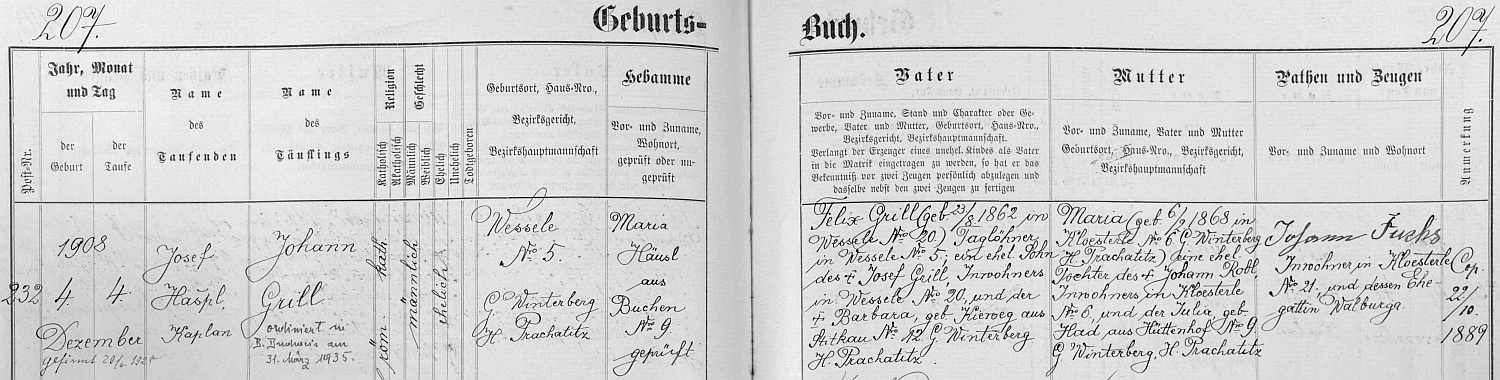 207.
Geburts-
Buch.
207.
Post-Nr.
Jahr, Monat
und Tag
der
Geburt
der
Taufe
Name
des
Taufenden
Name
des
Täuflings
Religion
Katholisch
Akatholisch
Geschlecht
Männlich
Weiblich
Ehelich
Unehelich
Todtgeboren
Geburtsort, Haus-Nro.,
Bezirksgericht,
Bezirkshauptmannschaft
Hebamme
Vor- und Zuname,
Wohnort,
geprüft oder un-
geprüft
Vater
Vor- und Zuname, Stand und Charakter oder Ge-
werbe, Vater und Mutter, Geburtsort, Haus-Nro.,
Bezirksgericht, Bezirkshauptmannschaft.
Verlangt der Erzeuger eines unehel. Kindes als Vater
in die Matrik eingetragen zu werden, so hat er das
Bekenntniß vor zwei Zeugen persönlich abzulegen und
dasselbe nebst den zwei Zeugen zu fertigen
Mutter
Vor- und Zuname, Vater und Mutter
Geburtsort, Haus-Nro., Bezirksgericht,
Bezirkshauptmannschaft
Pathen und Zeugen
Vor- und Zuname und Wohnort
Anmerkung
232
1908
4. 4.
Dezember
gefirmt
Josef
Haspl,
Kaplan
Johann
Grill
ordiniert in
B. Budweis am
31. März 1935.
röm. kath.
männlich
ehelich
Wessele
No 5.
G. Winterberg
H. Prachatitz
Maria
Häusl
aus
Buchen
No 9
geprüft
Felix Grill (geb. 23/8 1862 in
Wessele No 20.) Taglöhner
in Wessele No 5; ein ehel. Sohn
des + Josef Grill, Inwohners
in Wessele No 20, und der
+ Barbara, geb. aus
No 12. G. Winterberg
H. Prachatitz.
Maria (geb. 1868 in
Kloesterle No 6. G. Winterberg
H. Prachatitz) eine ehel.
Tochter des + Johann Robl,
Inwohners in Kloesterle
No 6, und der Julia, geb.
Had aus Hüttenhof No 9.
G. Winterberg, H. Prachatitz
Johann Fuchs
Inwohner in Kloesterle
No 21. und dessen Ehe-
gattin Walburga
Cop.
22/
10.
1889